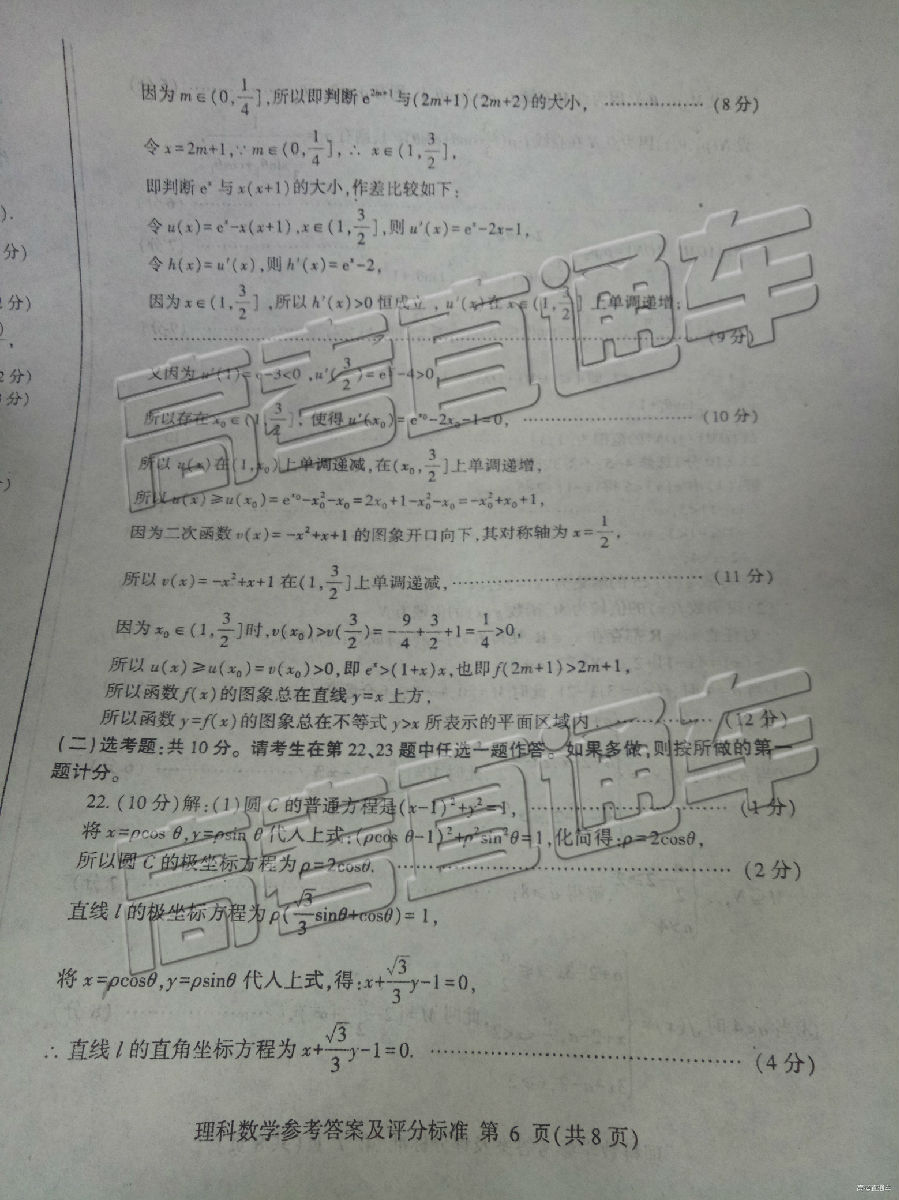 因为 m∈(0,1/4],所以即判断 e^{2m+1}与(2m+1)(2m+2)的大小, ………………(8分)
令 x=2m+1,∵m∈(0,1/4],∴ x∈(1,3/2],
即判断 e^x 与 x(x+1)的大小,作差比较如下:
令 u(x)=e^x-x(x+1),x∈(1,3/2],则 u'(x)=e^x-2x-1,
令 h(x)=u'(x),则 h'(x)=e^x-2,
因为 x∈(1,3/2],所以 h'(x)>0 恒成立,u'(x)在 x∈(1,3/2]上单调递增;
………………(9分)
又因为 u'(1)=e-3<0,u'(3/2)= -4>0,
所以存在 x₀∈(1,3/2],使得 u'(x₀)=e^{x₀}-2x₀-1=0, ………………(10分)
所以 u(x)在(1,x₀)上单调递减,在(x₀,3/2]上单调递增,
所以 u(x)≥u(x₀)=e^{x₀}-x₀²-x₀=2x₀+1-x₀²-x₀=-x₀²+x₀+1,
因为二次函数 v(x)=-x²+x+1 的图象开口向下,其对称轴为 x=1/2,
所以 v(x)=-x²+x+1 在(1,3/2]上单调递减, ………………(11分)
因为 x₀∈(1,3/2]时,v(x₀)>v(3/2)=-9/4+3/2+1=1/4>0,
所以 u(x)≥u(x₀)=v(x₀)>0,即 e^x>(1+x)x,也即 f(2m+1)>2m+1,
所以函数 f(x)的图象总在直线 y=x 上方,
所以函数 y=f(x)的图象总在不等式 y>x 所表示的平面区域内. ………………(12分)
(二)选考题:共10分。请考生在第22、23题中任选一题作答。如果多做,则按所做的第一
题计分。
22.(10分)解:(1)圆 C 的普通方程是(x-1)²+y²=1, ………………(1分)
将 x=ρcos θ,y=ρsin θ代入上式:(ρcos θ-1)²+ρ²sin²θ=1,化简得:ρ=2cosθ,
所以圆 C 的极坐标方程为 ρ=2cosθ. ………………(2分)
直线 l 的极坐标方程为 ρ(√3/3 sinθ+cosθ)=1,
将 x=ρcosθ,y=ρsinθ 代入上式,得:x+√3/3 y-1=0,
∴ 直线 l 的直角坐标方程为 x+√3/3 y-1=0. ………………(4分)
理科数学参考答案及评分标准 第 6 页(共8页)
高考直通车
高考直通车